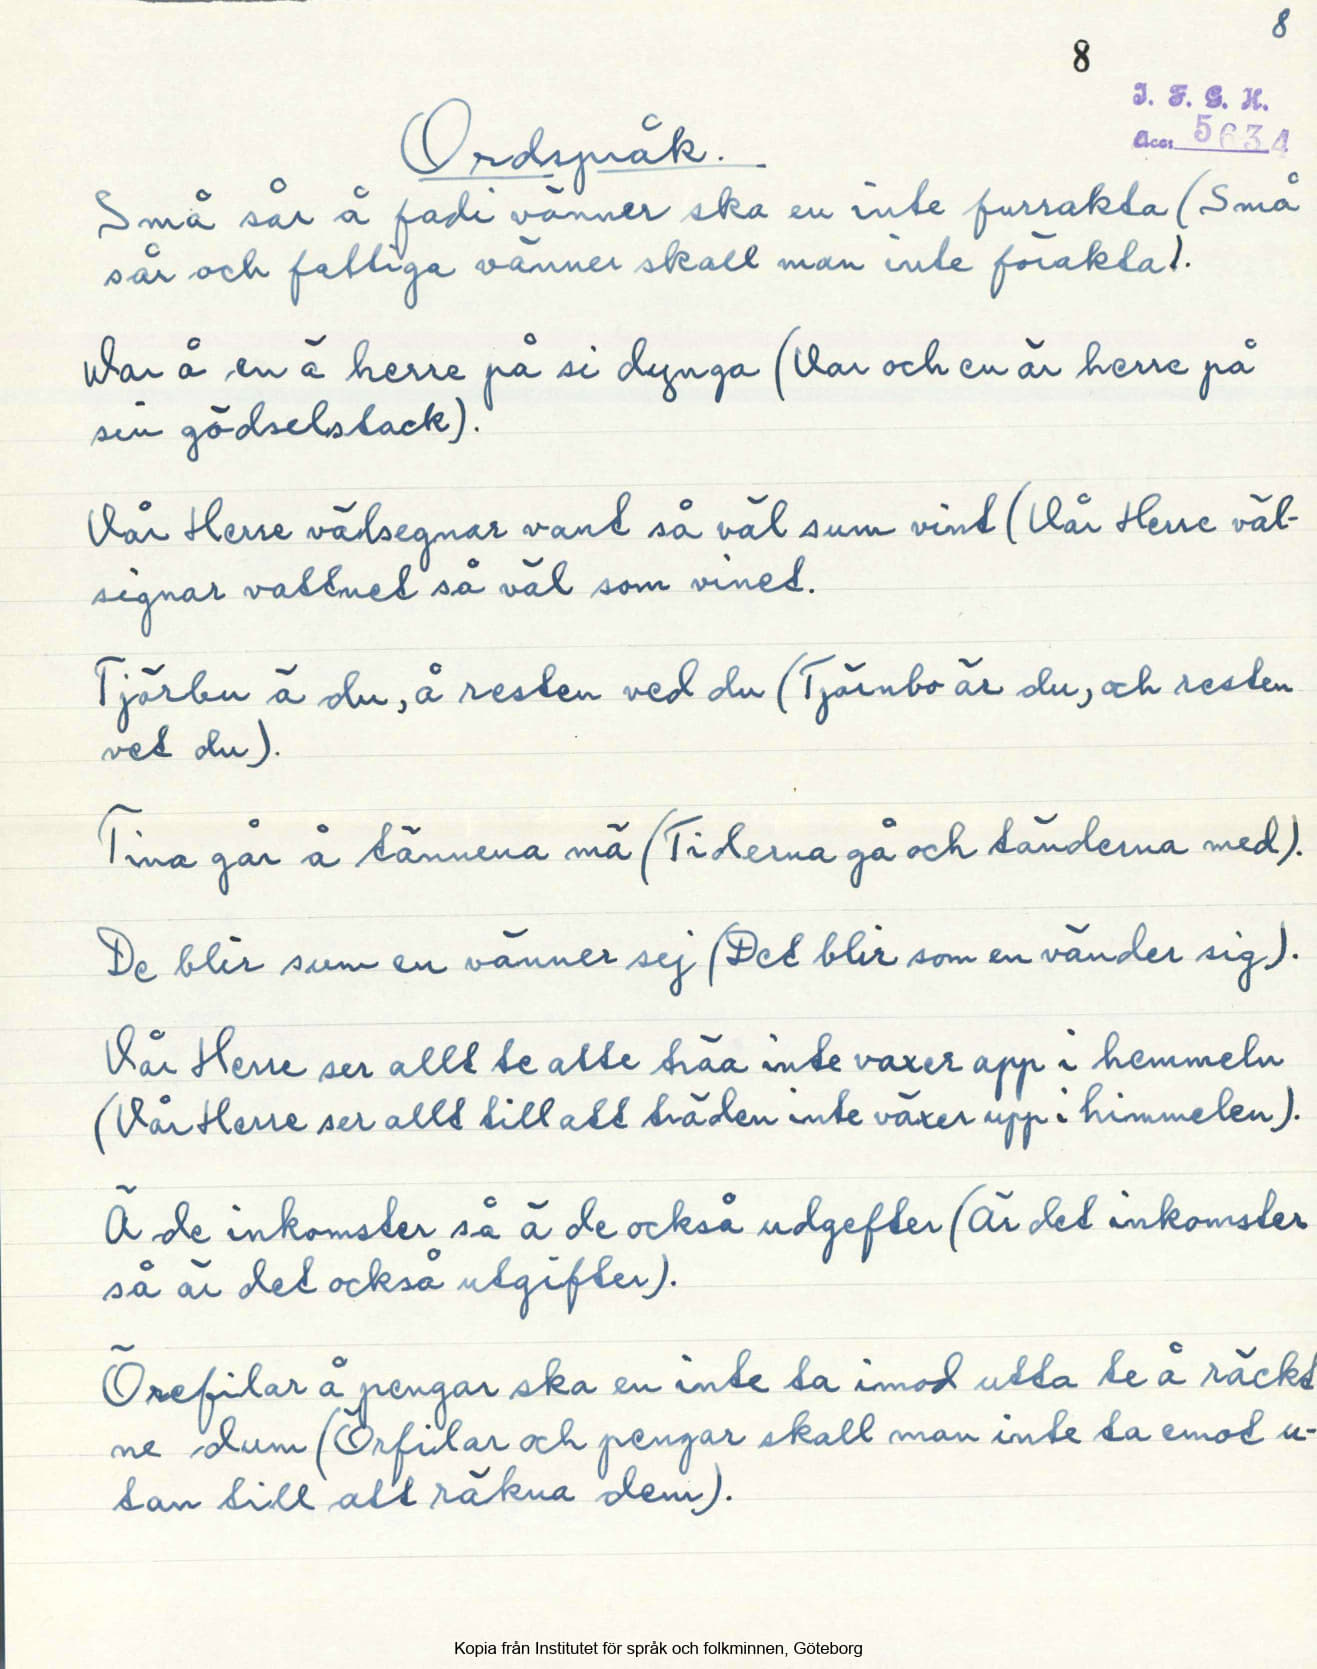 8
8
I. F. G. H.
Acc. 5634
Ordspråk.
Små sår å fadi vänner ska en inte furrakta (Små
sår och fattiga vänner skall man inte förakta).
Var å en ä herre på si dynga (Var och en är herre på
sin gödselstack).
Vår Herre välsegnar vant så väl sum vint (Vår Herre väl-
signar vattnet så väl som vinet.
Tjärbu ä du, å resten ved du (Tjärnbo är du, och resten
vet du).
Tina går å tännena mä (Tiderna gå och tänderna med).
De blir sum en vänner sej (Det blir som en vänder sig).
Vår Herre ser allt te atte träa inte vaxer app i hemmeln
(Vår Herre ser allt till att träden inte växer upp i himmelen).
Ä de inkomster så ä de också udgefter (Är det inkomster
så är det också utgifter).
Örefilar å pengar ska en inte ta imod utta te å räckt
ne dum (Örfilar och pengar skall man inte ta emot u-
tan till att räkna dem).
Kopia från Institutet för språk och folkminnen, Göteborg